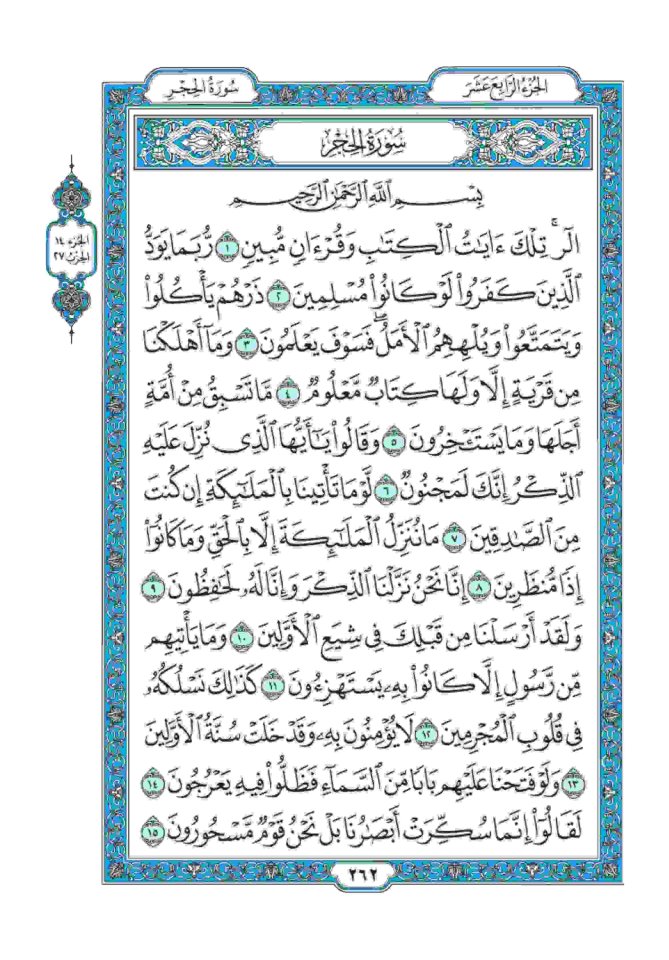 الجُزْءُ الرَّابِعَ عَشَرَ
سُورَةُ الحِجْرِ
سُورَةُ الحِجْرِ
بِسْمِ ٱللَّهِ ٱلرَّحْمَٰنِ ٱلرَّحِيمِ
الجزء ١٤
الحزب ٢٧
الٓرۚ تِلْكَ ءَايَٰتُ ٱلْكِتَٰبِ وَقُرْءَانٍ مُّبِينٍ ١ رُّبَمَا يَوَدُّ
ٱلَّذِينَ كَفَرُوا۟ لَوْ كَانُوا۟ مُسْلِمِينَ ٢ ذَرْهُمْ يَأْكُلُوا۟
وَيَتَمَتَّعُوا۟ وَيُلْهِهِمُ ٱلْأَمَلُۖ فَسَوْفَ يَعْلَمُونَ ٣ وَمَآ أَهْلَكْنَا
مِن قَرْيَةٍ إِلَّا وَلَهَا كِتَابٌ مَّعْلُومٌ ٤ مَّا تَسْبِقُ مِنْ أُمَّةٍ
أَجَلَهَا وَمَا يَسْتَـْٔخِرُونَ ٥ وَقَالُوا۟ يَٰٓأَيُّهَا ٱلَّذِى نُزِّلَ عَلَيْهِ
ٱلذِّكْرُ إِنَّكَ لَمَجْنُونٌ ٦ لَّوْ مَا تَأْتِينَا بِٱلْمَلَٰٓئِكَةِ إِن كُنتَ
مِنَ ٱلصَّٰدِقِينَ ٧ مَا نُنَزِّلُ ٱلْمَلَٰٓئِكَةَ إِلَّا بِٱلْحَقِّ وَمَا كَانُوٓا۟
إِذًا مُّنظَرِينَ ٨ إِنَّا نَحْنُ نَزَّلْنَا ٱلذِّكْرَ وَإِنَّا لَهُۥ لَحَٰفِظُونَ ٩
وَلَقَدْ أَرْسَلْنَا مِن قَبْلِكَ فِى شِيَعِ ٱلْأَوَّلِينَ ١٠ وَمَا يَأْتِيهِم
مِّن رَّسُولٍ إِلَّا كَانُوا۟ بِهِۦ يَسْتَهْزِءُونَ ١١ كَذَٰلِكَ نَسْلُكُهُۥ
فِى قُلُوبِ ٱلْمُجْرِمِينَ ١٢ لَا يُؤْمِنُونَ بِهِۦ وَقَدْ خَلَتْ سُنَّةُ ٱلْأَوَّلِينَ
١٣ وَلَوْ فَتَحْنَا عَلَيْهِم بَابًا مِّنَ ٱلسَّمَآءِ فَظَلُّوا۟ فِيهِ يَعْرُجُونَ ١٤
لَقَالُوٓا۟ إِنَّمَا سُكِّرَتْ أَبْصَٰرُنَا بَلْ نَحْنُ قَوْمٌ مَّسْحُورُونَ ١٥
٢٦٢